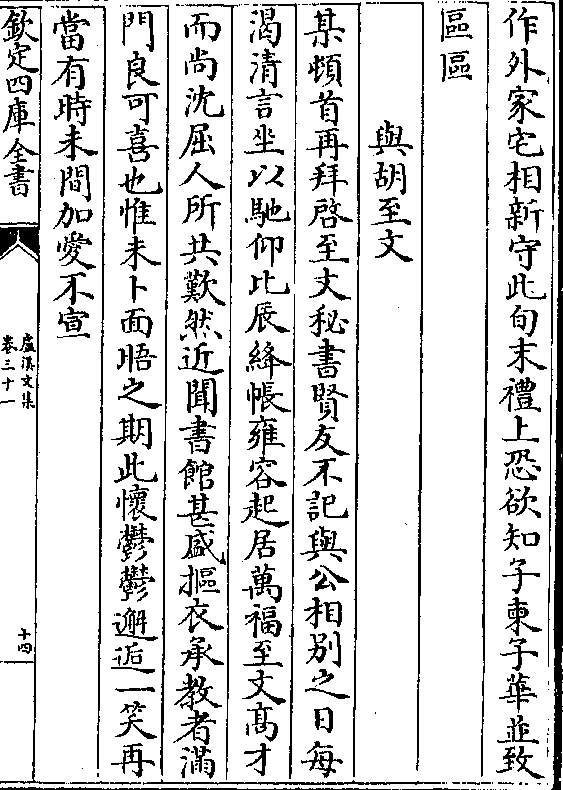 作外家宅相新守此旬末禮上恐欲知子東子華並致
區區
與胡至文
某頓首再拜啓至文秘書賢友不記與公相別之日每
渴清言坐以馳仰比辰絳帳雍容起居萬福至文髙才
而尚沈屈人所共歎然近聞書館甚盛摳衣承教者滿
門良可喜也惟未卜面晤之期此懷鬱鬱邂逅一笑再
當有時未間加愛不宣
欽定四庫全書
盧溪文集
卷三十一
十四